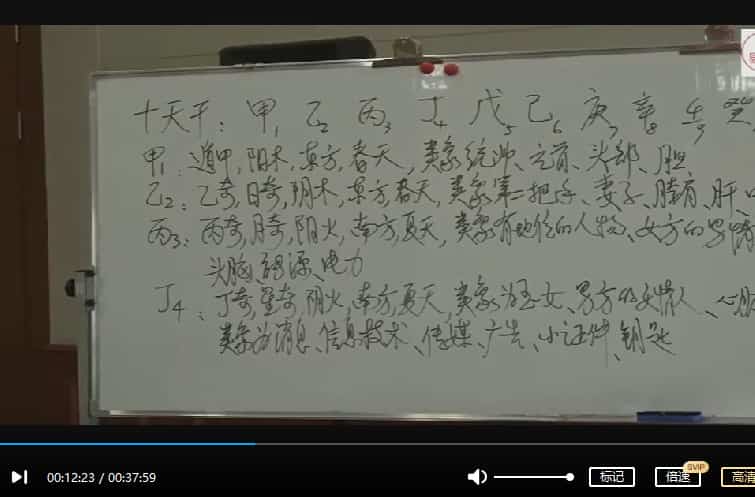 十天干：甲1 乙2 丙3 丁4 戊5 己6 庚7 辛8 壬9 癸
甲1：遁甲，阳木，东方，春天，类象统帅、元首、头部、胆
乙2：乙奇，日奇，阴木，东方，春天，类象第二把手、妻子、肝、
丙3：丙奇，月奇，阳火，南方，夏天，类象有地位的人物、女方的男情
头脑、能源、电力
丁4：丁奇，星奇，阴火，南方，夏天，类象为玉女、男方的女情人、心脏
类象为消息、信息技术、传媒、广告、小证件、钥匙
00:12:23 / 00:37:59
标记
倍速
SVIP
高清